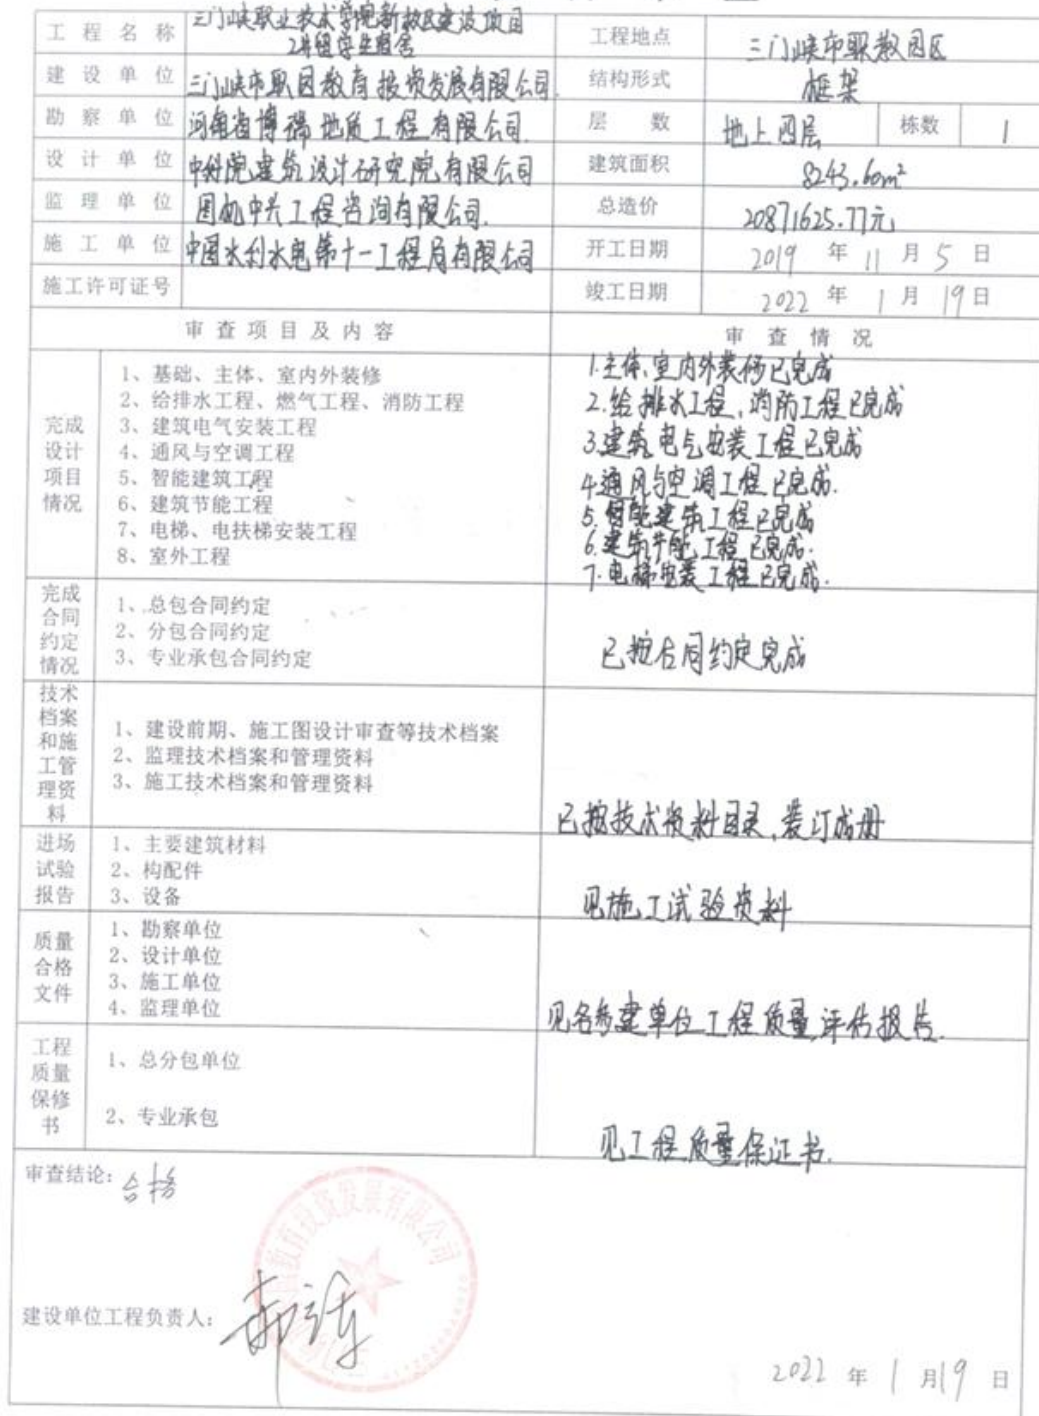 工程名称 三门峡职业技术学院新校区建设项目 工程地点 三门峡市职教园区
2#留学生宿舍
建设单位 三门峡市职园教育投资发展有限公司 结构形式 框架
勘察单位 河南省博瑞地质工程有限公司 层数 地上四层 栋数 1
设计单位 中科院建筑设计研究院有限公司 建筑面积 8243.60m²
监理单位 国机中兴工程咨询有限公司. 总造价 20871625.77元
施工单位 中国水利水电第十一工程局有限公司 开工日期 2019年11月5日
施工许可证号 竣工日期 2022年1月19日
审查项目及内容 审查情况
完成设计项目情况
1、基础、主体、室内外装修
2、给排水工程、燃气工程、消防工程
3、建筑电气安装工程
4、通风与空调工程
5、智能建筑工程
6、建筑节能工程
7、电梯、电扶梯安装工程
8、室外工程
1.主体、室内外装修已完成
2.给排水工程、消防工程已完成
3.建筑电气安装工程已完成
4.通风与空调工程已完成.
5.智能建筑工程已完成
6.建筑节能工程已完成.
7.电梯安装工程已完成.
完成合同约定情况
1、总包合同约定
2、分包合同约定
3、专业承包合同约定
已按合同约定完成
技术档案和施工管理资料
1、建设前期、施工图设计审查等技术档案
2、监理技术档案和管理资料
3、施工技术档案和管理资料
已按技术资料目录,装订成册
进场试验报告
1、主要建筑材料
2、构配件
3、设备
见施工试验资料
质量合格文件
1、勘察单位
2、设计单位
3、施工单位
4、监理单位
见各参建单位工程质量评估报告.
工程质量保修书
1、总分包单位
2、专业承包
见工程质量保证书.
审查结论:合格
教育投资发展有限公司
建设单位工程负责人:
2022年1月19日